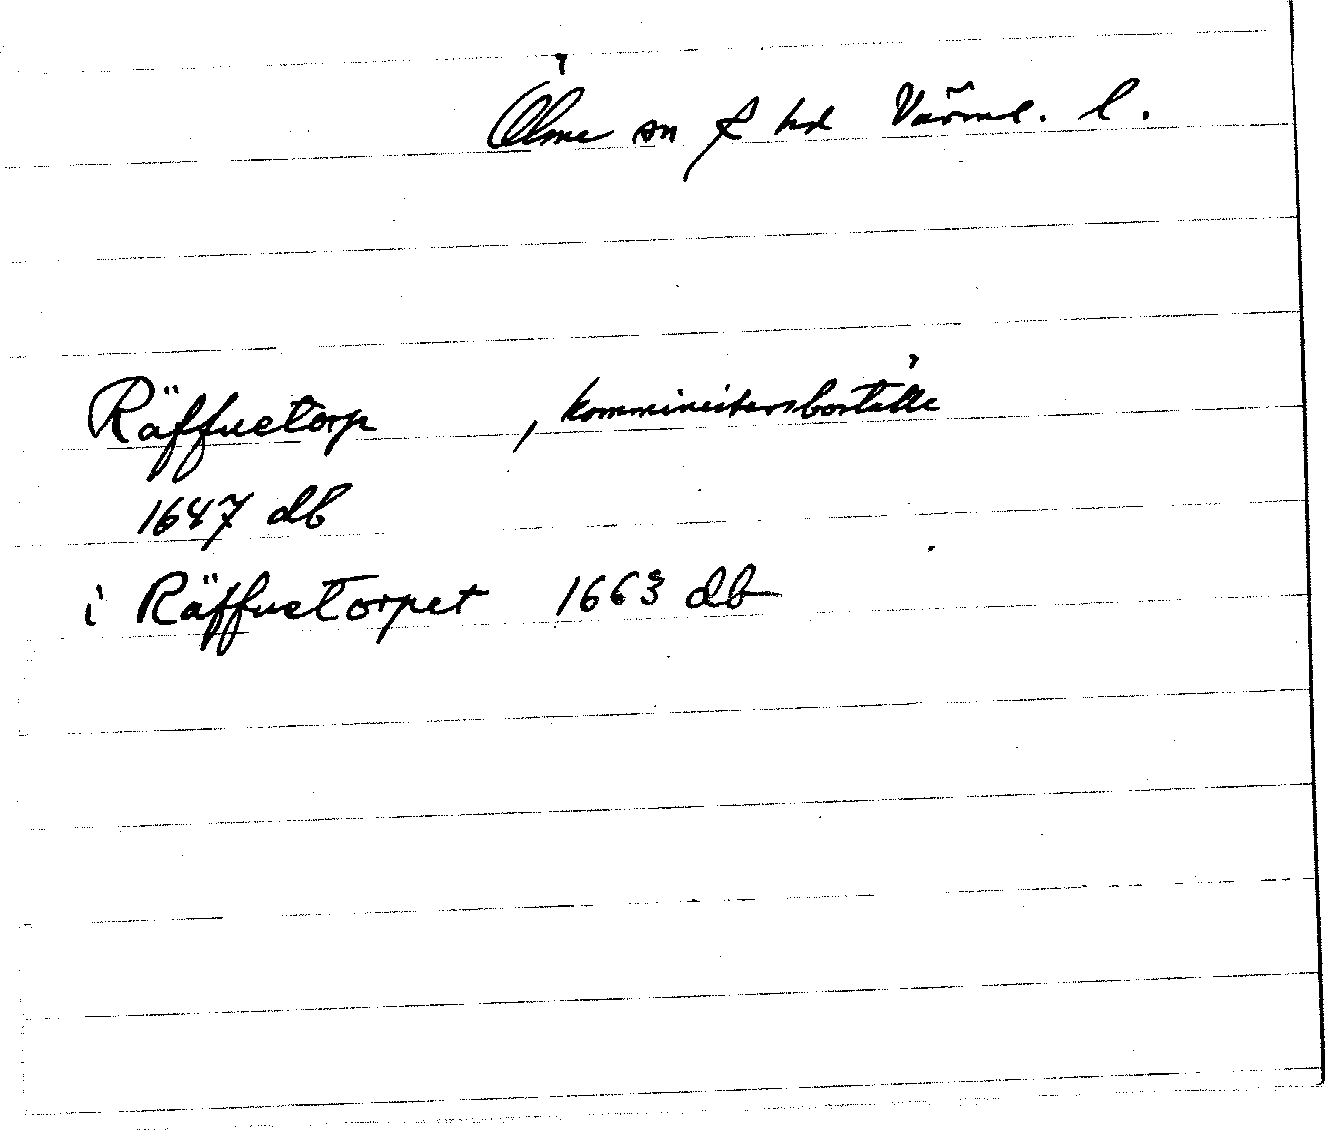 Ölme sn o hd Värml. l.
Räffuetorp , komministersboställe
1647 db
i Räffuetorpet 1663 db